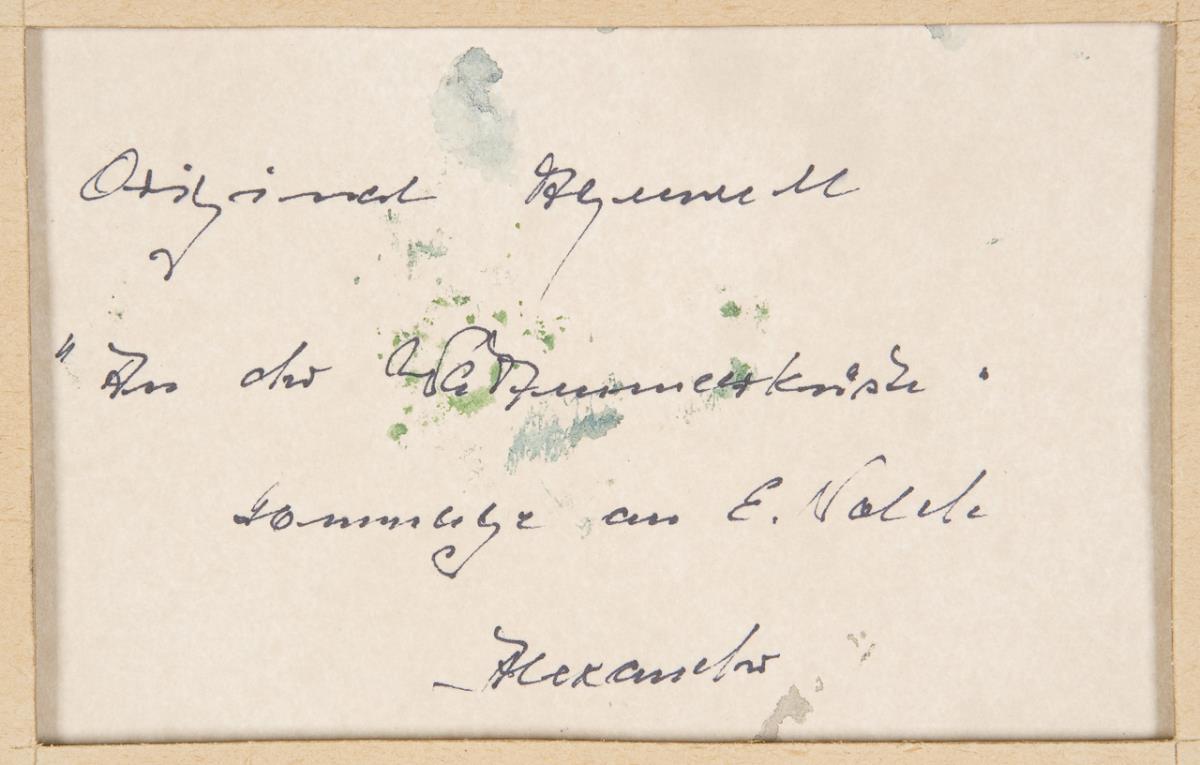 Original Aquarell
"An der Wattenmeerküste"
Hommage an E. Nolde
Alexander